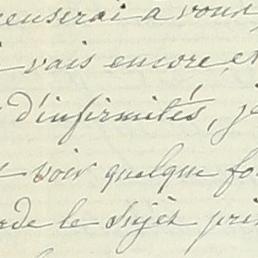 penserai a vous
vais encore et
d'infirmités, je
voir quelque fo
de le sujet pri